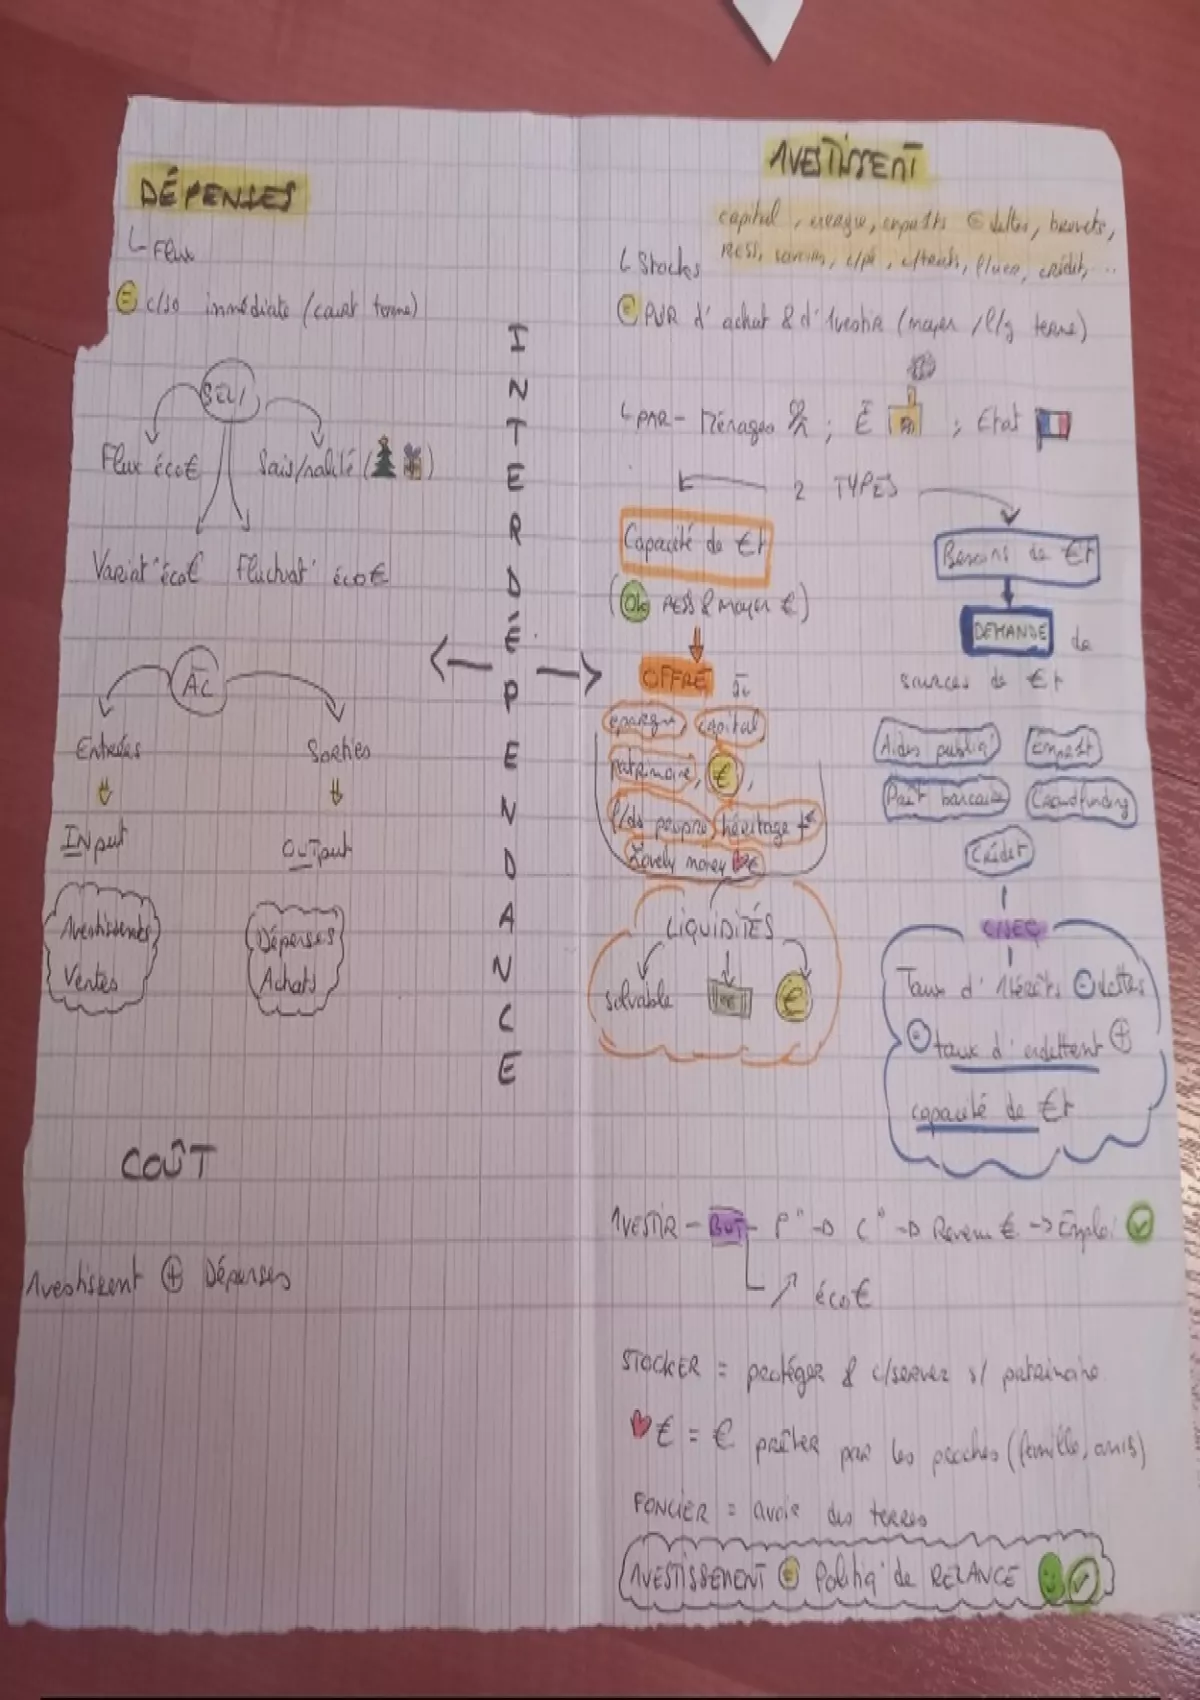 DÉPENSES
↳ Flux
= c/so immédiate (court terme)
SEL/
Flux éco€
Sais/nalité ( )
Variat° éco€
Fluctuat° éco€
AC
Entrées
Sorties
INput
OUTput
Avestissents
Ventes
Dépenses
Achats
COÛT
Avestissent ⊕ Dépenses
INTERDÉPENDANCE
AVESTISSENT
capital, dettes, brevets,
RESS, crédit, ...
↳ Stocks
= d'achat & d'1vestir (moyen /l/g terme)
↳ PAR - Ménages ; E ; Etat
2 TYPES
Capacité de €t
(OK RESS & moyen €)
OFFRE
épargne, capital,
patrimoine, €,
f/ds propre, héritage
Lovely money ♥€
LIQUIDITÉS
solvable
€
Besoins de €t
DEMANDE de
sources de €t
Aides publiq°
Empr1t
Prêt bancaire
Crowdfunding
Crédit
Taux d'1térêts = dettes
= taux d'endettent ⊕
capacité de €t
1VESTIR - BUT - P° → C° → Revenu € → Emploi
↗ éco€
STOCKER = protéger & c/server s/ patrimoine
♥€ = € prêter par les proches (famille, amis)
FONCIER = avoir des terres
1VESTISSEMENT = Politiq° de RELANCE